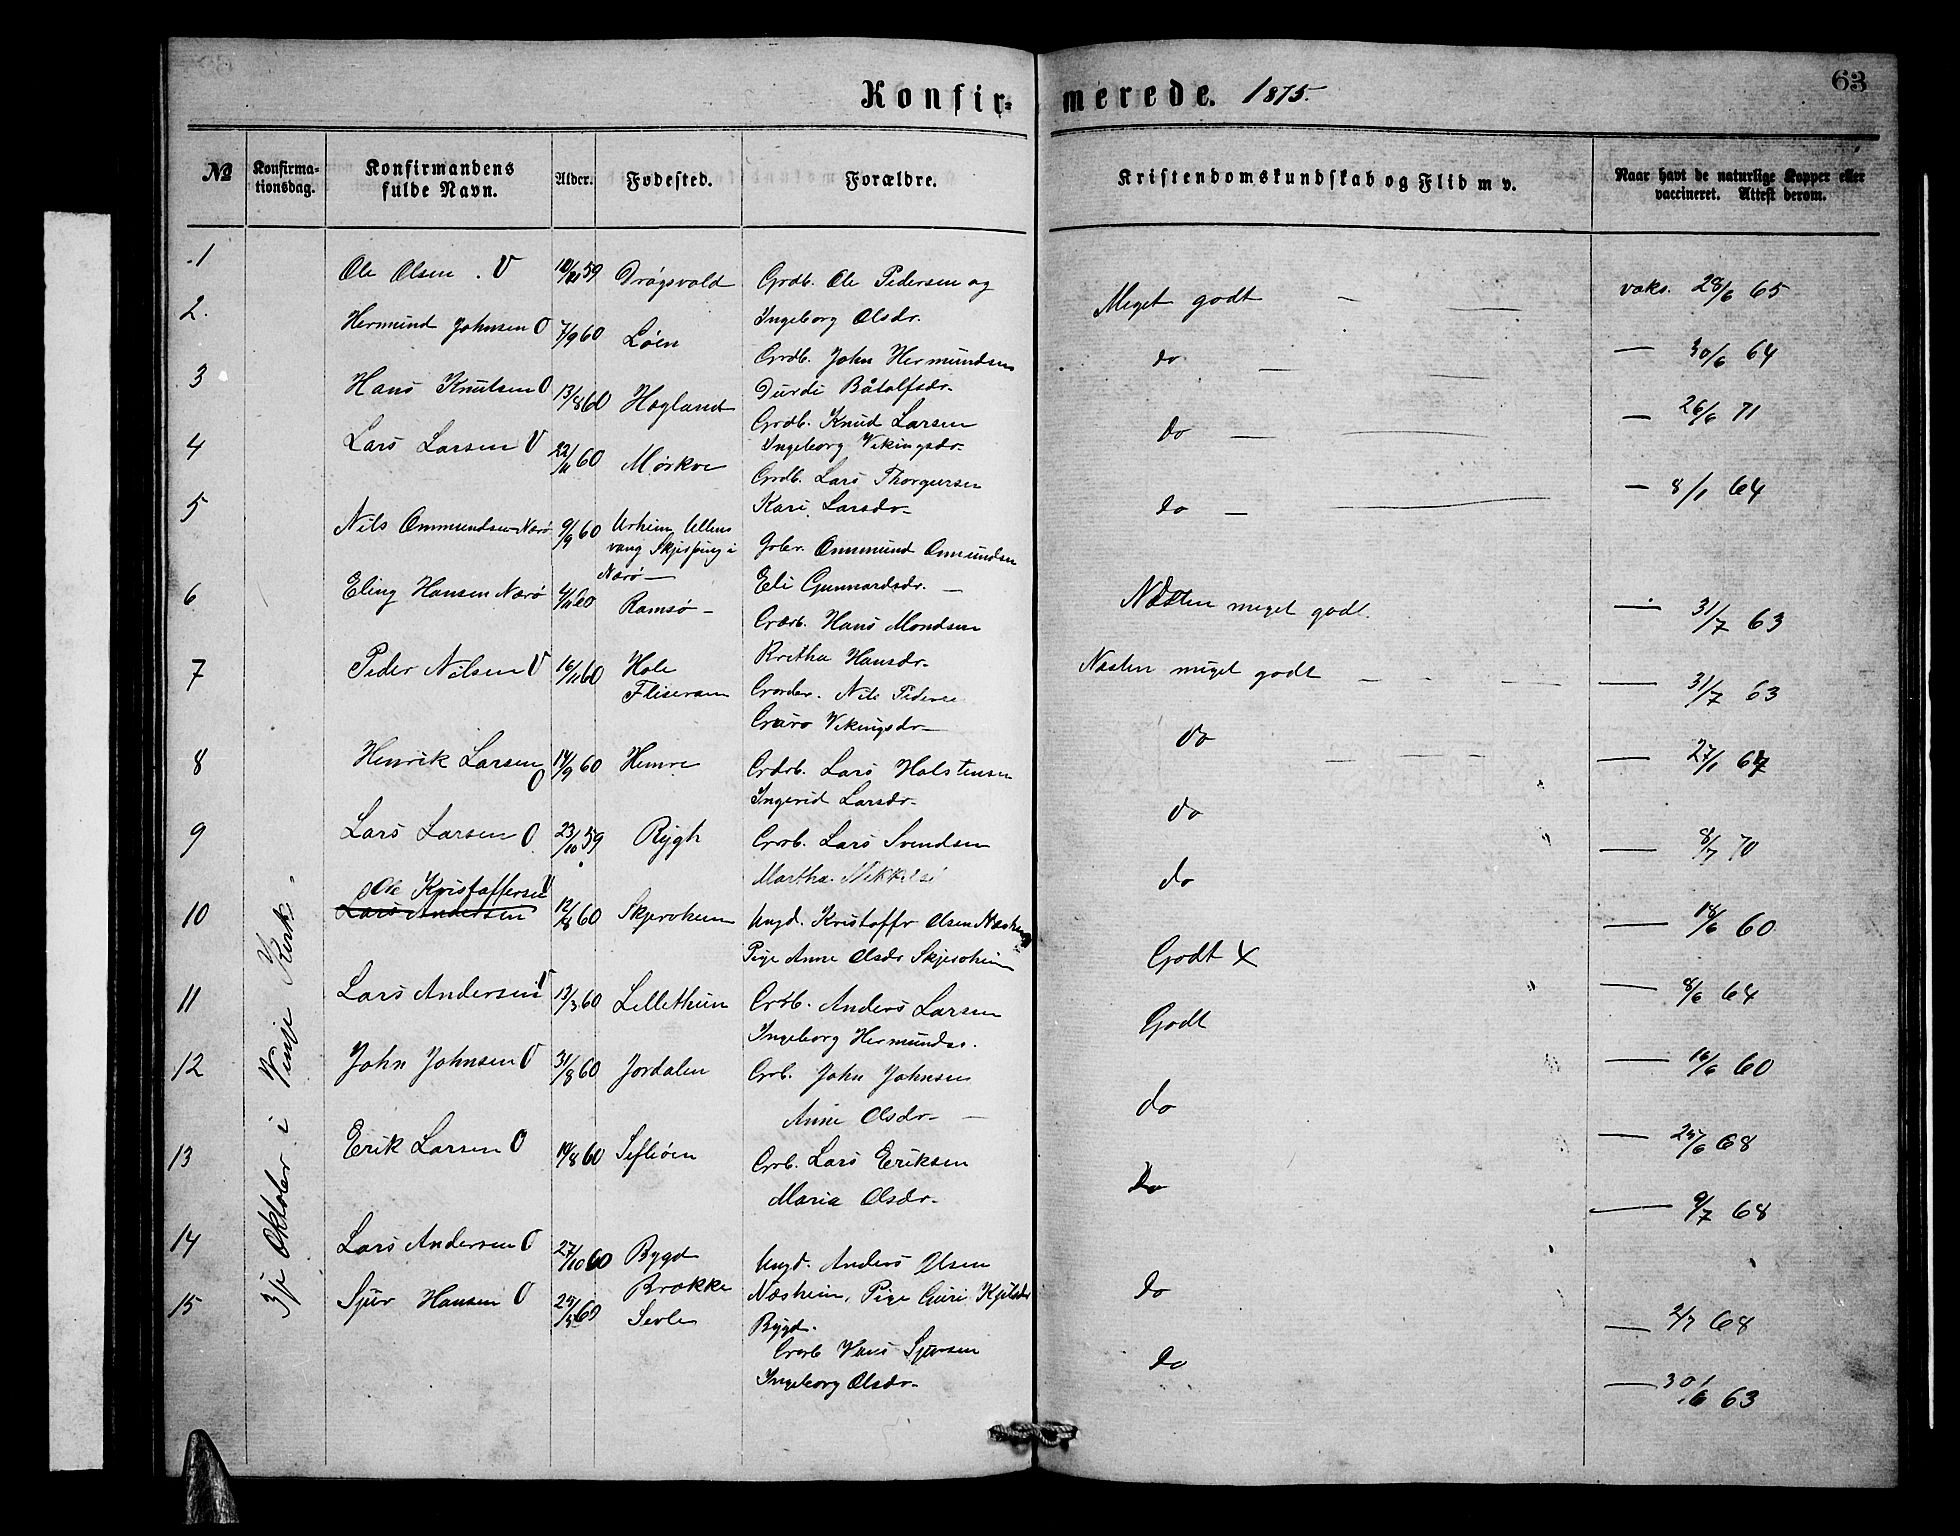 Konfirmerede. 1875.
63
No
Konfirmationsdag.
Konfirmandens fulde Navn.
Alder.
Fødested.
Forældre.
Kristendomskundskab og Flid m v.
Naar havt de naturlige Kopper eller vaccineret. Attest derom.
3die Oktober i Vinje Kirk.
1 Ole Olsen. V 59 Drøgsvold Grdb. Ole Pedersen og Meget godt — — vaks. 28/6 65
Ingeborg Olsdr.
2. Hermund Johnsen O 7/9 60 Løen Grdb. John Hermundsen do — — — 30/6 64
Durdi Båtolfsdr.
3 Hans Knutsen O 13/8 60 Høgland Grdb. Knud Larsen do — — — 26/6 71
Ingeborg Vikingsdr.
4 Lars Larsen V 22/11 60 Mørkve Grdb. Lars Thorgersen do — — — 8/1 64
Kari Larsdr.
5 Nils Ommundsen Nærø 9/9 60 Urheim Ullens
vang Skydsung i
Nærø — Grbr. Ommund Ommundsen Næsten meget godt. — 31/7 63
Eli Gunnardsdr. —
6 Eling Hansen Nærø 4/11 60 Ramsø — Grdb. Hans Mondsen Næsten meget godt — — — 31/7 63
Kretha Hansdr.
7 Peder Nilsen V 16/11 60 Hole
Fliseram Grdbr. Nils Pederse do — — — — 27/1 67
Guro Vikingsdr.
8 Henrik Larsen O 14/9 60 Himre Grdb. Lars Holstensen do — 8/7 70
Ingerid Larsdr.
9 Lars Larsen O 23/10 59 Rygh Grb. Lars Svendsen do — 18/6 60
Martha Nikkelsd
10 Ole Kristoffersen V
Lars Andersen 12/8 60 Skjerveheim Ungd. Kristoffer Olsen Næsheim Godt X — 8/6 64
Pige Anne Olsdr Skjerveheim
11 Lars Andersen V 13/3 60 Lillethun Grb. Anders Larsen Godt — 16/6 60
Ingeborg Hermundsd.
12 John Johnsen O 31/8 60 Jordalen Grb. John Johnsen do — 25/6 68
Anne Olsdr. —
13 Erik Larsen O 19/8 60 Sifleøen Grb. Lars Eriksen do — 9/7 68
Maria Olsdr.
14 Lars Andersen O 27/10 60 Bygd Ungd. Anders Olsen do — 2/7 68
Brække Næsheim, Pige Guri Kjelsdr
Bygd.
15 Sjur Hansen O 25/5 60 Sevle Grb Hans Sjursen do — 30/6 63
Ingeborg Olsdr.